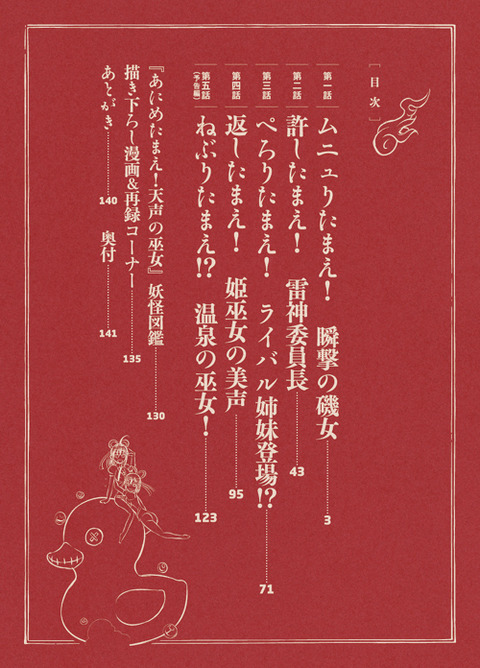 ［目次］
第一話 ムニュりたまえ！ 瞬撃の磯女 3
第二話 許したまえ！ 雷神委員長 43
第三話 ぺろりたまえ！ ライバル姉妹登場!? 71
第四話 返したまえ！ 姫巫女の美声 95
第五話（予告編） ねぶりたまえ!? 温泉の巫女！ 123
『あにめたまえ！天声の巫女』妖怪図鑑 130
描き下ろし漫画&再録コーナー 135
あとがき 140 奥付 141